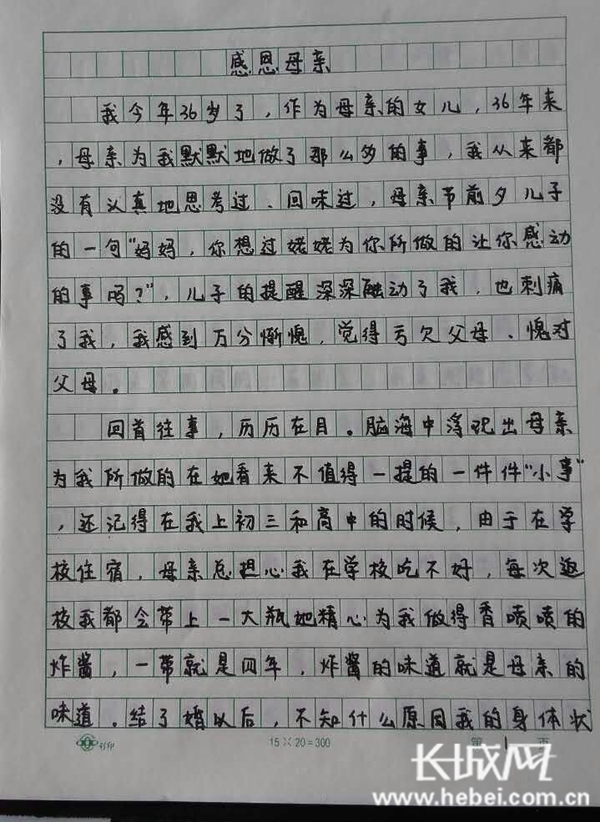 感恩母亲
我今年36岁了，作为母亲的女儿，36年来
，母亲为我默默地做了那么多的事，我从来都
没有认真地思考过、回味过，母亲节前夕儿子
的一句"妈妈，你想过姥姥为你所做的让你感动
的事吗？"，儿子的提醒深深触动了我，也刺痛
了我，我感到万分惭愧，觉得亏欠父母、愧对
父母。
回首往事，历历在目。脑海中浮现出母亲
为我所做的在她看来不值得一提的一件件"小事"
，还记得在我上初三和高中的时候，由于在学
校住宿，母亲总担心我在学校吃不好，每次返
校我都会带上一大瓶她精心为我做得香喷喷的
炸酱，一带就是四年，炸酱的味道就是母亲的
味道。结了婚以后，不知什么原因我的身体状
彩印 15×20=300 第 1 页
长城网
www.hebei.com.cn